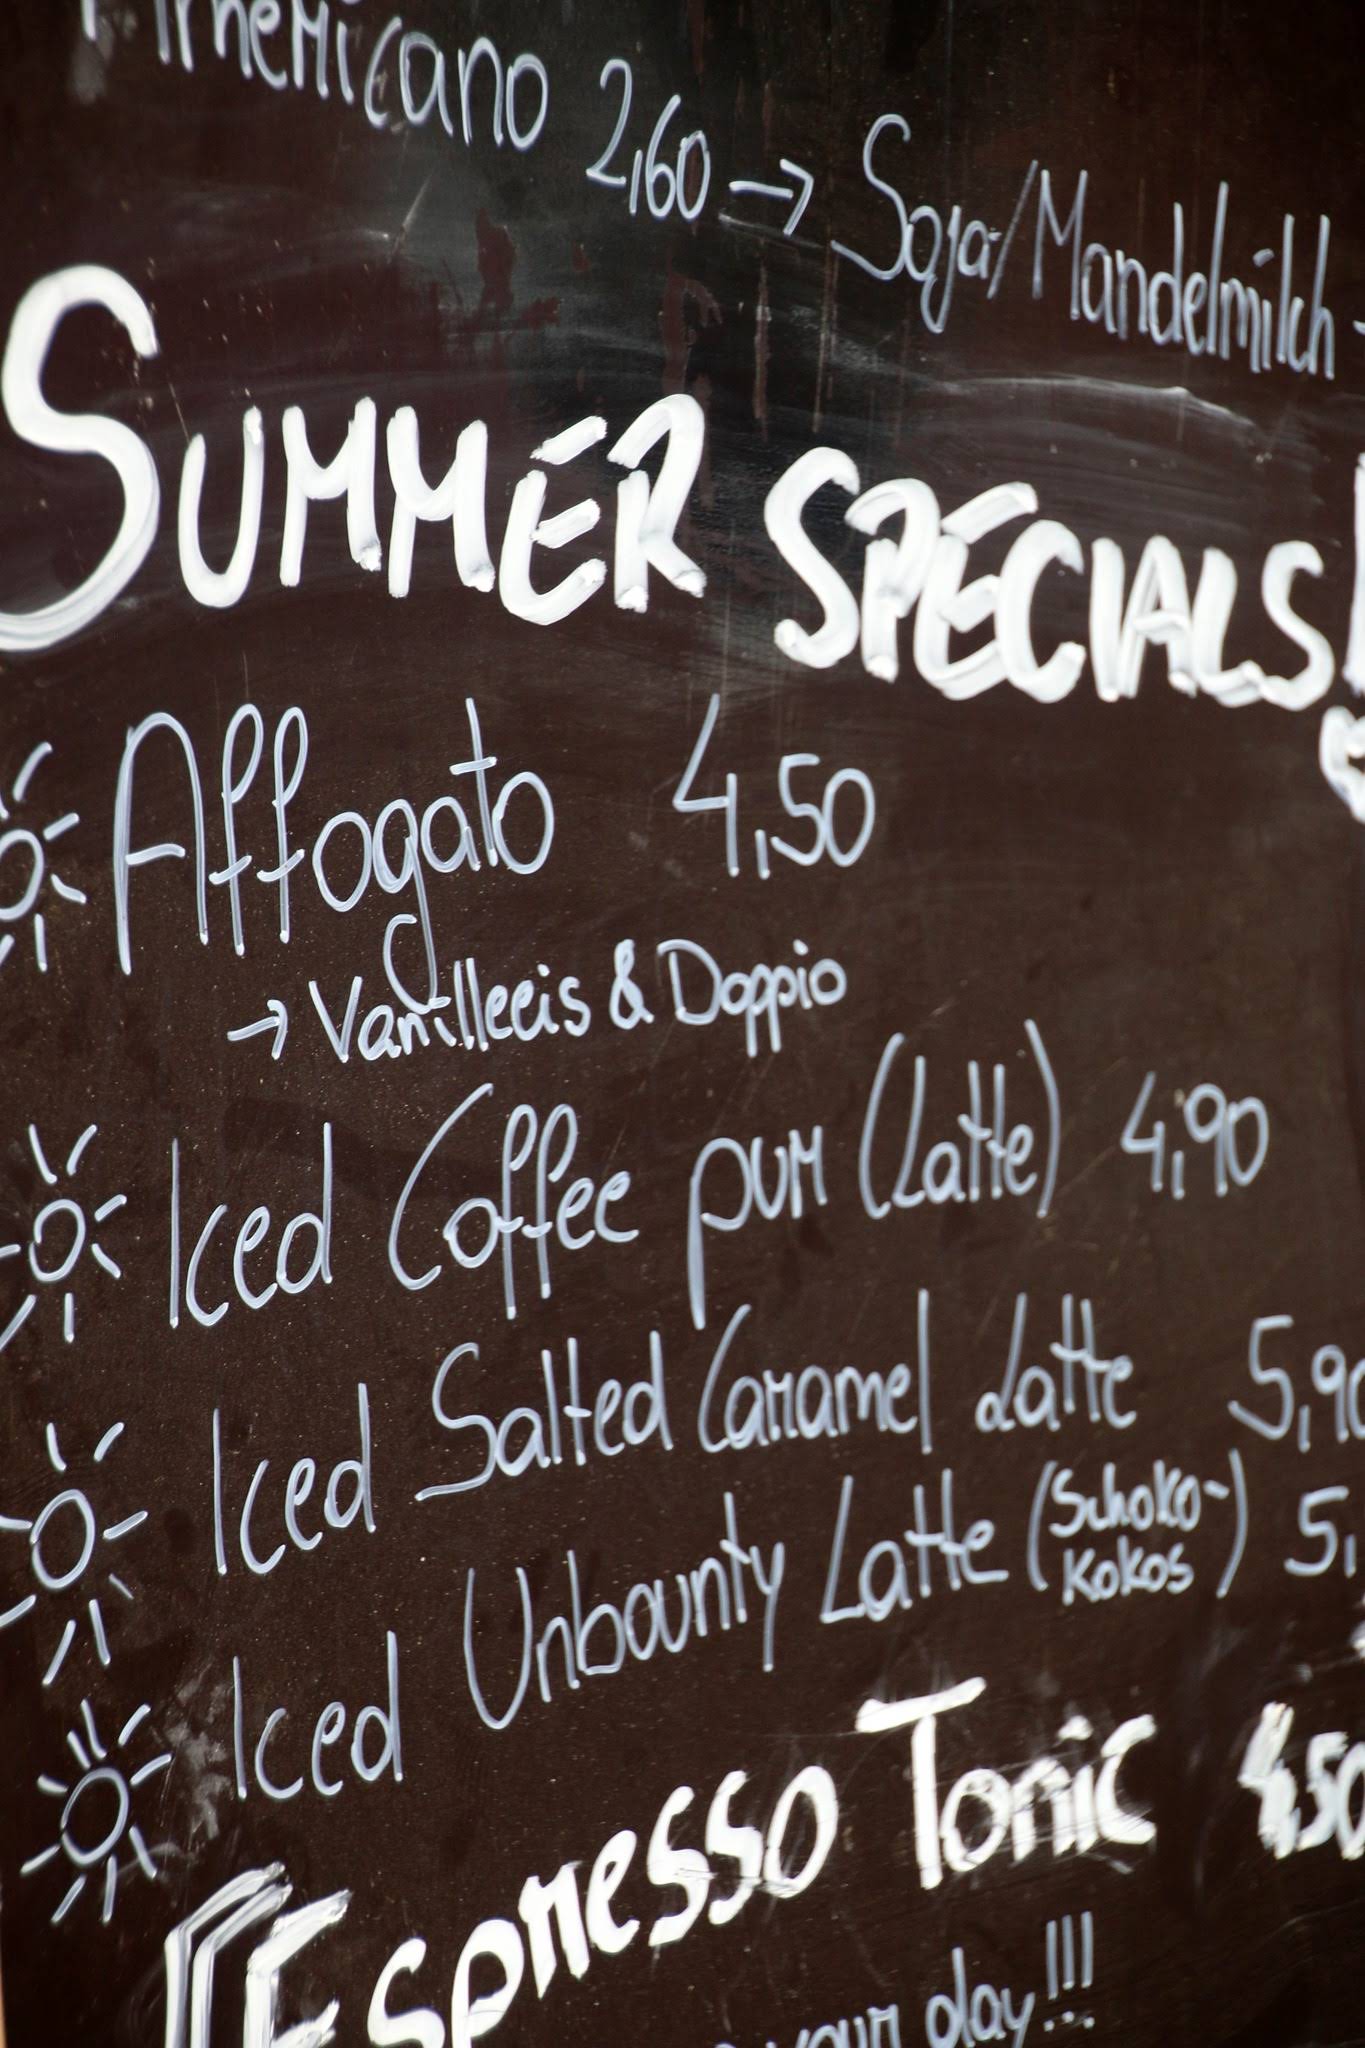 Americano 2,60 → Soja-/Mandelmilch
SUMMER SPECIALS!
Affogato 4,50
→ Vanilleeis & Doppio
Iced Coffee pur (Latte) 4,90
Iced Salted Caramel Latte 5,90
Iced Unbounty Latte (Schoko-Kokos) 5,
Espresso Tonic 4,50
your day!!!